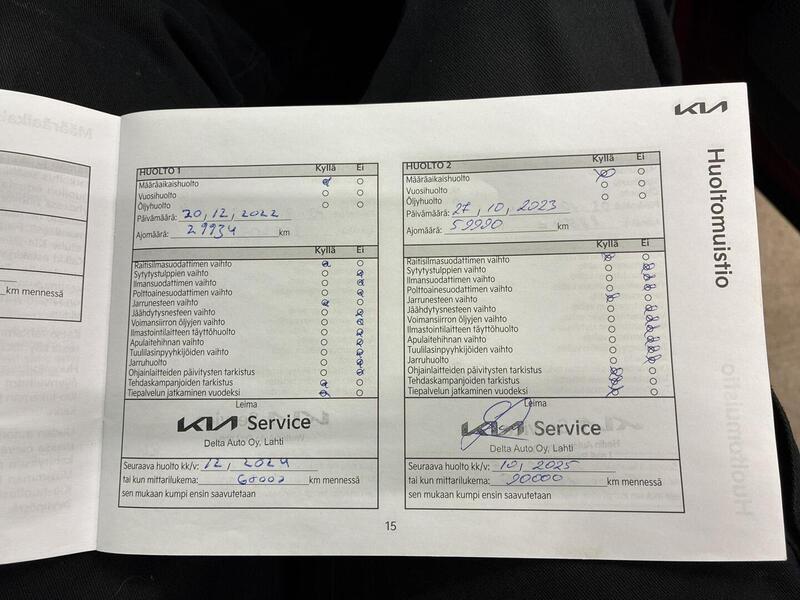 KIA
Huoltomuistio
km mennessä
HUOLTO 1 Kyllä Ei
Määräaikaishuolto
Vuosihuolto
Öljyhuolto
Päivämäärä: 20, 12, 2022
Ajomäärä: 29934 km
Kyllä Ei
Raitisilmasuodattimen vaihto
Sytytystulppien vaihto
Ilmansuodattimen vaihto
Polttoainesuodattimen vaihto
Jarrunesteen vaihto
Jäähdytysnesteen vaihto
Voimansiirron öljyjen vaihto
Ilmastointilaitteen täyttöhuolto
Apulaitehihnan vaihto
Tuulilasinpyyhkijöiden vaihto
Jarruhuolto
Ohjainlaitteiden päivitysten tarkistus
Tehdaskampanjoiden tarkistus
Tiepalvelun jatkaminen vuodeksi
Leima
KIA Service
Delta Auto Oy, Lahti
Seuraava huolto kk/v: 12, 2024
tai kun mittarilukema: 60000 km mennessä
sen mukaan kumpi ensin saavutetaan
HUOLTO 2 Kyllä Ei
Määräaikaishuolto
Vuosihuolto
Öljyhuolto
Päivämäärä: 27, 10, 2023
Ajomäärä: 59990 km
Kyllä Ei
Raitisilmasuodattimen vaihto
Sytytystulppien vaihto
Ilmansuodattimen vaihto
Polttoainesuodattimen vaihto
Jarrunesteen vaihto
Jäähdytysnesteen vaihto
Voimansiirron öljyjen vaihto
Ilmastointilaitteen täyttöhuolto
Apulaitehihnan vaihto
Tuulilasinpyyhkijöiden vaihto
Jarruhuolto
Ohjainlaitteiden päivitysten tarkistus
Tehdaskampanjoiden tarkistus
Tiepalvelun jatkaminen vuodeksi
Leima
KIA Service
Delta Auto Oy, Lahti
Seuraava huolto kk/v: 10, 2025
tai kun mittarilukema: 90000 km mennessä
sen mukaan kumpi ensin saavutetaan
15